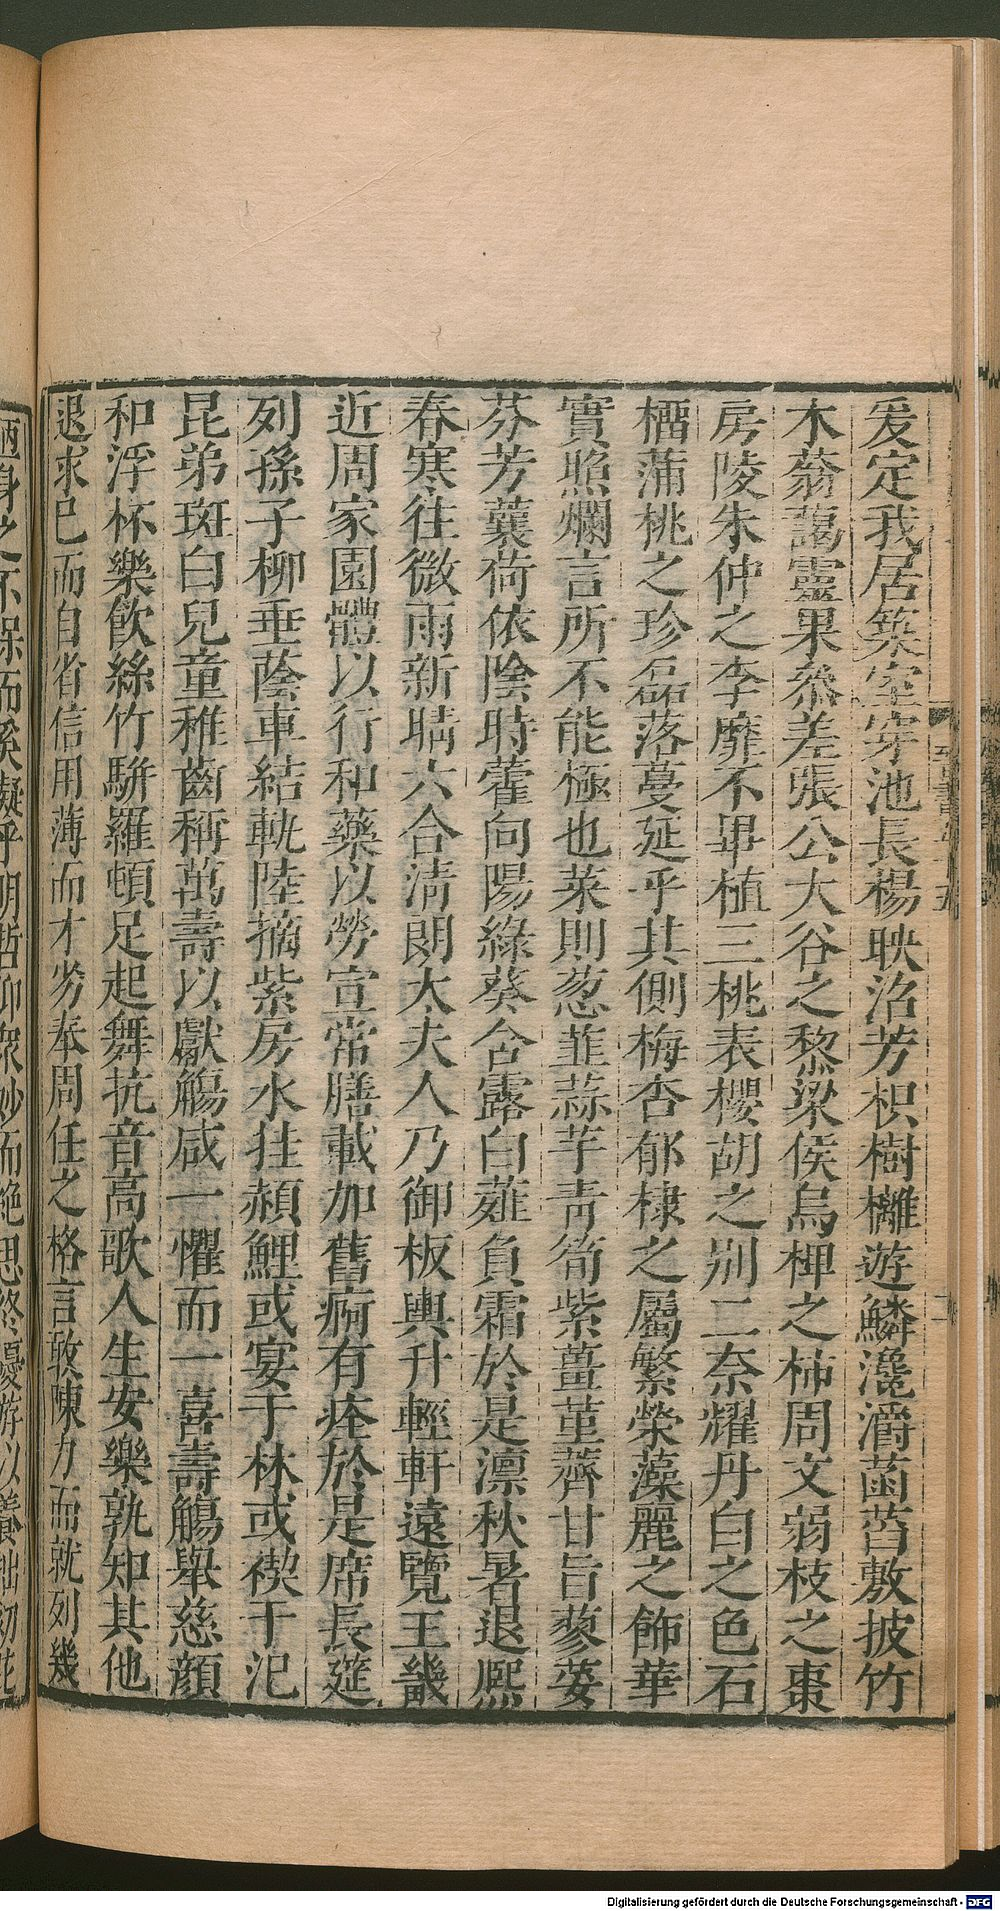 爰定我居築室穿池長楊映沼芳枳樹櫳遊鱗瀺灂菡萏敷披竹
木蓊藹靈果叅差張公大谷之黎梁侯烏椑之柿周文弱枝之棗
房陵朱仲之李靡不畢植三桃表櫻胡之别二柰耀丹白之色石
榴蒲桃之珍磊落蔓延乎其側梅杏郁棣之屬繁榮藻麗之飾華
實照爛言所不能極也菜則葱韭蒜芋青筍紫薑堇薺甘旨蓼荽
芬芳蘘荷依陰時藿向陽綠葵含露白薤負霜於是凛秋暑退熈
春寒往微雨新晴六合清朗太夫人乃御板輿升輕軒遠覽王畿
近周家園體以行和藥以勞宣常膳載加舊痾有痊於是席長筵
列孫子柳垂蔭車結軌陸摘紫房水挂赬鯉或宴于林或禊于汜
昆弟斑白兒童稚齒稱萬壽以獻觴咸一懼而一喜壽觴舉慈顔
和浮杯樂飲絲竹駢羅頓足起舞抗音高歌人生安樂孰知其他
退求已而自省信用薄而才劣奉周任之格言敢陳力而就列幾
陋身之不保而奚擬乎明哲仰衆妙而絶思終優游以養拙
Digitalisierung gefördert durch die Deutsche Forschungsgemeinschaft - DFG